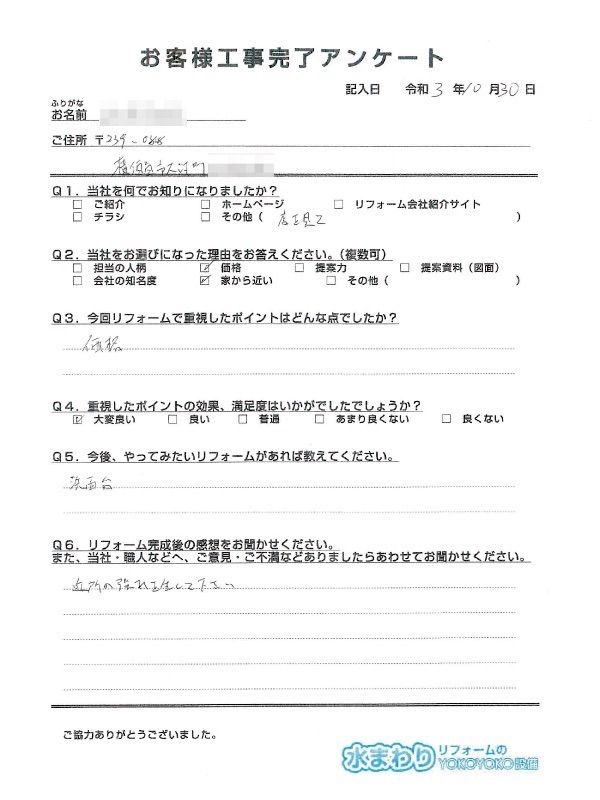 お客様工事完了アンケート
記入日 令和 3 年 10 月 30 日
ふりがな
お名前
ご住所 〒239-
Q1．当社を何でお知りになりましたか？
□ ご紹介 □ ホームページ □ リフォーム会社紹介サイト
□ チラシ □ その他（ 店を見て ）
Q2．当社をお選びになった理由をお答えください。（複数可）
□ 担当の人柄 ☑ 価格 □ 提案力 □ 提案資料（図面）
□ 会社の知名度 ☑ 家から近い □ その他（ ）
Q3．今回リフォームで重視したポイントはどんな点でしたか？
価格
Q4．重視したポイントの効果、満足度はいかがでしたでしょうか？
☑ 大変良い □ 良い □ 普通 □ あまり良くない □ 良くない
Q5．今後、やってみたいリフォームがあれば教えてください。
洗面台
Q6．リフォーム完成後の感想をお聞かせください。
また、当社・職人などへ、ご意見・ご不満などありましたらあわせてお聞かせください。
近所の強みを生して下さい
ご協力ありがとうございました。
水まわり リフォームの YOKOYOKO設備